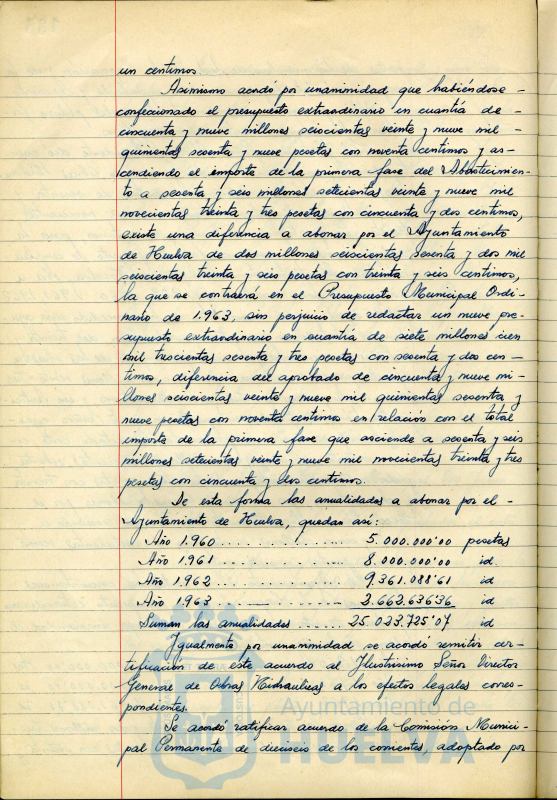 un centimos.
Asimismo acordó por unanimidad que habiéndose-
confeccionado el presupuesto extraordinario en cuantía de-
cincuenta y nueve millones seiscientas veinte y nueve mil-
quinientas sesenta y nueve pesetas con noventa centimos y as-
cendiendo el importe de la primera fase del Abastecimien-
to a sesenta y seis millones setecientas veinte y nueve mil
novecientas treinta y tres pesetas con cincuenta y dos centimos,
existe una diferencia a abonar por el Ayuntamiento
de Huelva de dos millones seiscientas sesenta y dos mil
seiscientas treinta y seis pesetas con treinta y seis centimos,
la que se contraerá en el Presupuesto Municipal Ordi-
nario de 1.963, sin perjuicio de redactar un nuevo pre-
supuesto extraordinario en cuantía de siete millones cien
mil trescientas sesenta y tres pesetas con sesenta y dos cen-
timos, diferencia del aprobado de cincuenta y nueve mi-
llones seiscientas veinte y nueve mil quinientas sesenta y
nueve pesetas con noventa centimos en relación con el total
importe de la primera fase que asciende a sesenta y seis
millones setecientas veinte y nueve mil novecientas treinta y tres
pesetas con cincuenta y dos centimos.
De esta forma las anualidades a abonar por el-
Ayuntamiento de Huelva, quedan así:
Año 1.960 .................. 5.000.000'00 pesetas
Año 1.961 .................. 8.000.000'00 id.
Año 1.962 .................. 9.361.088'61 id
Año 1.963 .................. 2.662.636'36 id
Suman las anualidades ........ 25.023.725'07 id
Igualmente por unanimidad se acordó remitir cer-
tificación de este acuerdo al Ilustrisimo Señor Director
General de Obras Hidraulicas a los efectos legales corres-
pondientes.
Se acordó ratificar acuerdo de la Comisión Munici-
pal Permanente de dieciseis de los corrientes, adoptado por
Ayuntamiento de
HUELVA